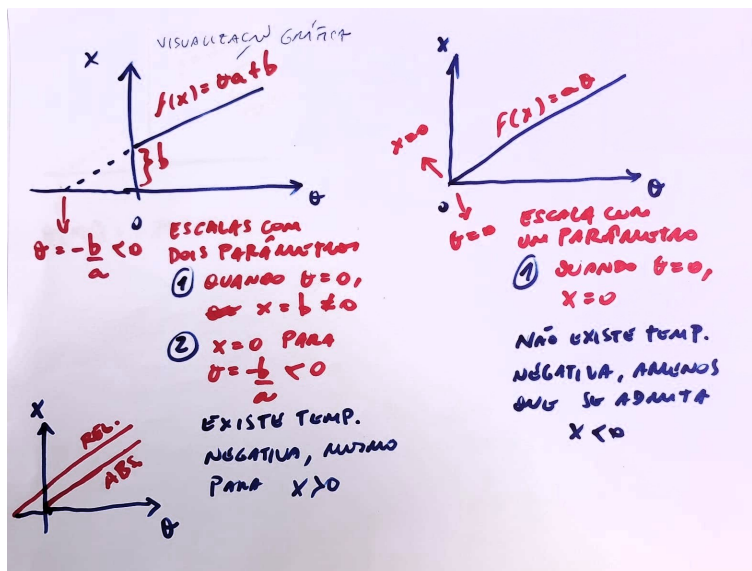 VISUALIZAÇÃO GRÁFICA
X
f(x)=θa+b
}b
θ
0
θ = -b/a < 0
ESCALAS COM
DOIS PARÂMETROS
① QUANDO θ=0,
X = b ≠ 0
② X=0 PARA
θ = -b/a < 0
EXISTE TEMP.
NEGATIVA, MESMO
PARA X>0
X
F(X)=aθ
X=0
θ
0
θ=0
ESCALA COM
UM PARÂMETRO
① QUANDO θ=0,
X=0
NÃO EXISTE TEMP.
NEGATIVA, AMENOS
QUE SE ADMITA
X<0
X
REL.
ABS.
θ